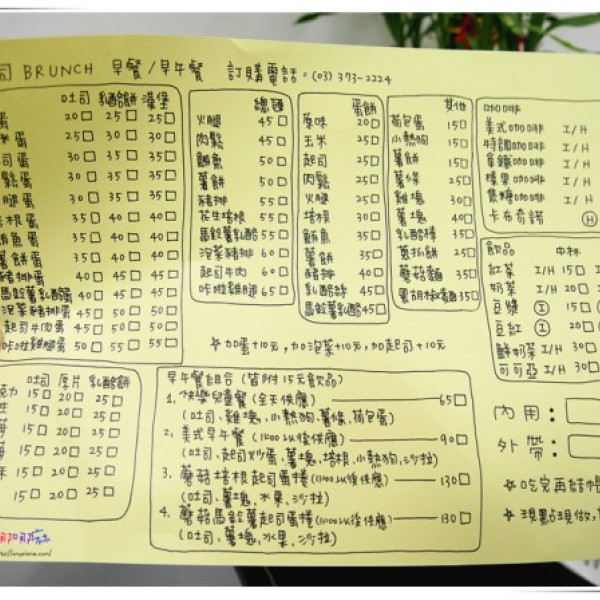 司 BRUNCH 早餐/早午餐 訂購電話=(03) 373-2224
吐司 乳酪餅 漢堡
蛋 20□ 25□ 25□
米蛋 25□ 30□ 30□
司蛋 30□ 35□ 35□
鬆蛋 30□ 35□ 35□
腿蛋 30□ 35□ 35□
培根蛋 35□ 40□ 40□
鮪魚蛋 35□ 40□ 40□
薯餅蛋 35□ 40□ 40□
豬排蛋 40□ 45□ 45□
馬鈴薯乳酪蛋 40□ 45□ 45□
泡菜豬排蛋 45□ 50□ 50□
起司牛肉蛋 45□ 50□ 50□
咔啦雞腿蛋 50□ 55□ 55□
總匯
火腿 45□
肉鬆 45□
鮪魚 50□
薯餅 50□
豬排 50□
花生培根 55□
馬鈴薯乳酪 55□
泡菜豬排 60□
起司牛肉 60□
咔啦雞腿 65□
蛋餅
原味 20□
玉米 25□
起司 25□
肉鬆 25□
火腿 25□
培根 30□
鮪魚 35□
薯餅 35□
豬排 40□
乳酪絲 45□
馬鈴薯乳酪 45□
其他
荷包蛋 15□
小熱狗 15□
薯餅 15□
薯條 25□
雞塊 30□
薯塊 40□
乳酪棒 35□
蔥抓餅 25□
蘑菇麵 35□
黑胡椒麵 35□
咖啡
美式咖啡 I/H
特調咖啡 I/H
拿鐵咖啡 I/H
榛果咖啡 I/H
焦糖咖啡 I/H
卡布奇諾 Ⓗ
飲品 中杯
紅茶 I/H 15□
奶茶 I/H 20□
豆漿 Ⓘ 15□
豆紅 Ⓘ 20□
鮮奶茶 I/H 30□
可可亞 I/H 30□
☆加蛋+10元,加泡菜+10元,加起司+10元
吐司 厚片 乳酪餅
克力 15□ 20□ 25□
生 15□ 20□ 25□
莓 15□ 20□ 25□
15□ 20□ 25□
15□ 20□ 25□
15□ 20□ 25□
早午餐組合 (皆附15元飲品)
1. 快樂兒童餐 (全天供應) 65□
(吐司、雞塊、小熱狗、薯條、荷包蛋)
2. 美式早午餐 (11:00以後供應) 90□
(吐司、起司炒蛋、薯塊、培根、小熱狗、沙拉)
3. 蘑菇培根起司蛋捲 (11:00以後供應) 130□
(吐司、薯塊、水果、沙拉)
4. 蘑菇馬鈴薯起司蛋捲 (11:00以後供應) 130□
(吐司、薯塊、水果、沙拉)
內用:
外帶:
☆吃完再結帳
☆現點現做,